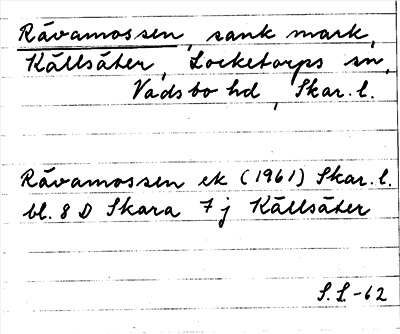 Råvamossen, sank mark,
Källsäter, Locketorps sn,
Vadsbo hd, Skar. l.
Råvamossen ek (1961) Skar. l.
bl. 8 D Skara 7 j Källsäter
S.L.-62